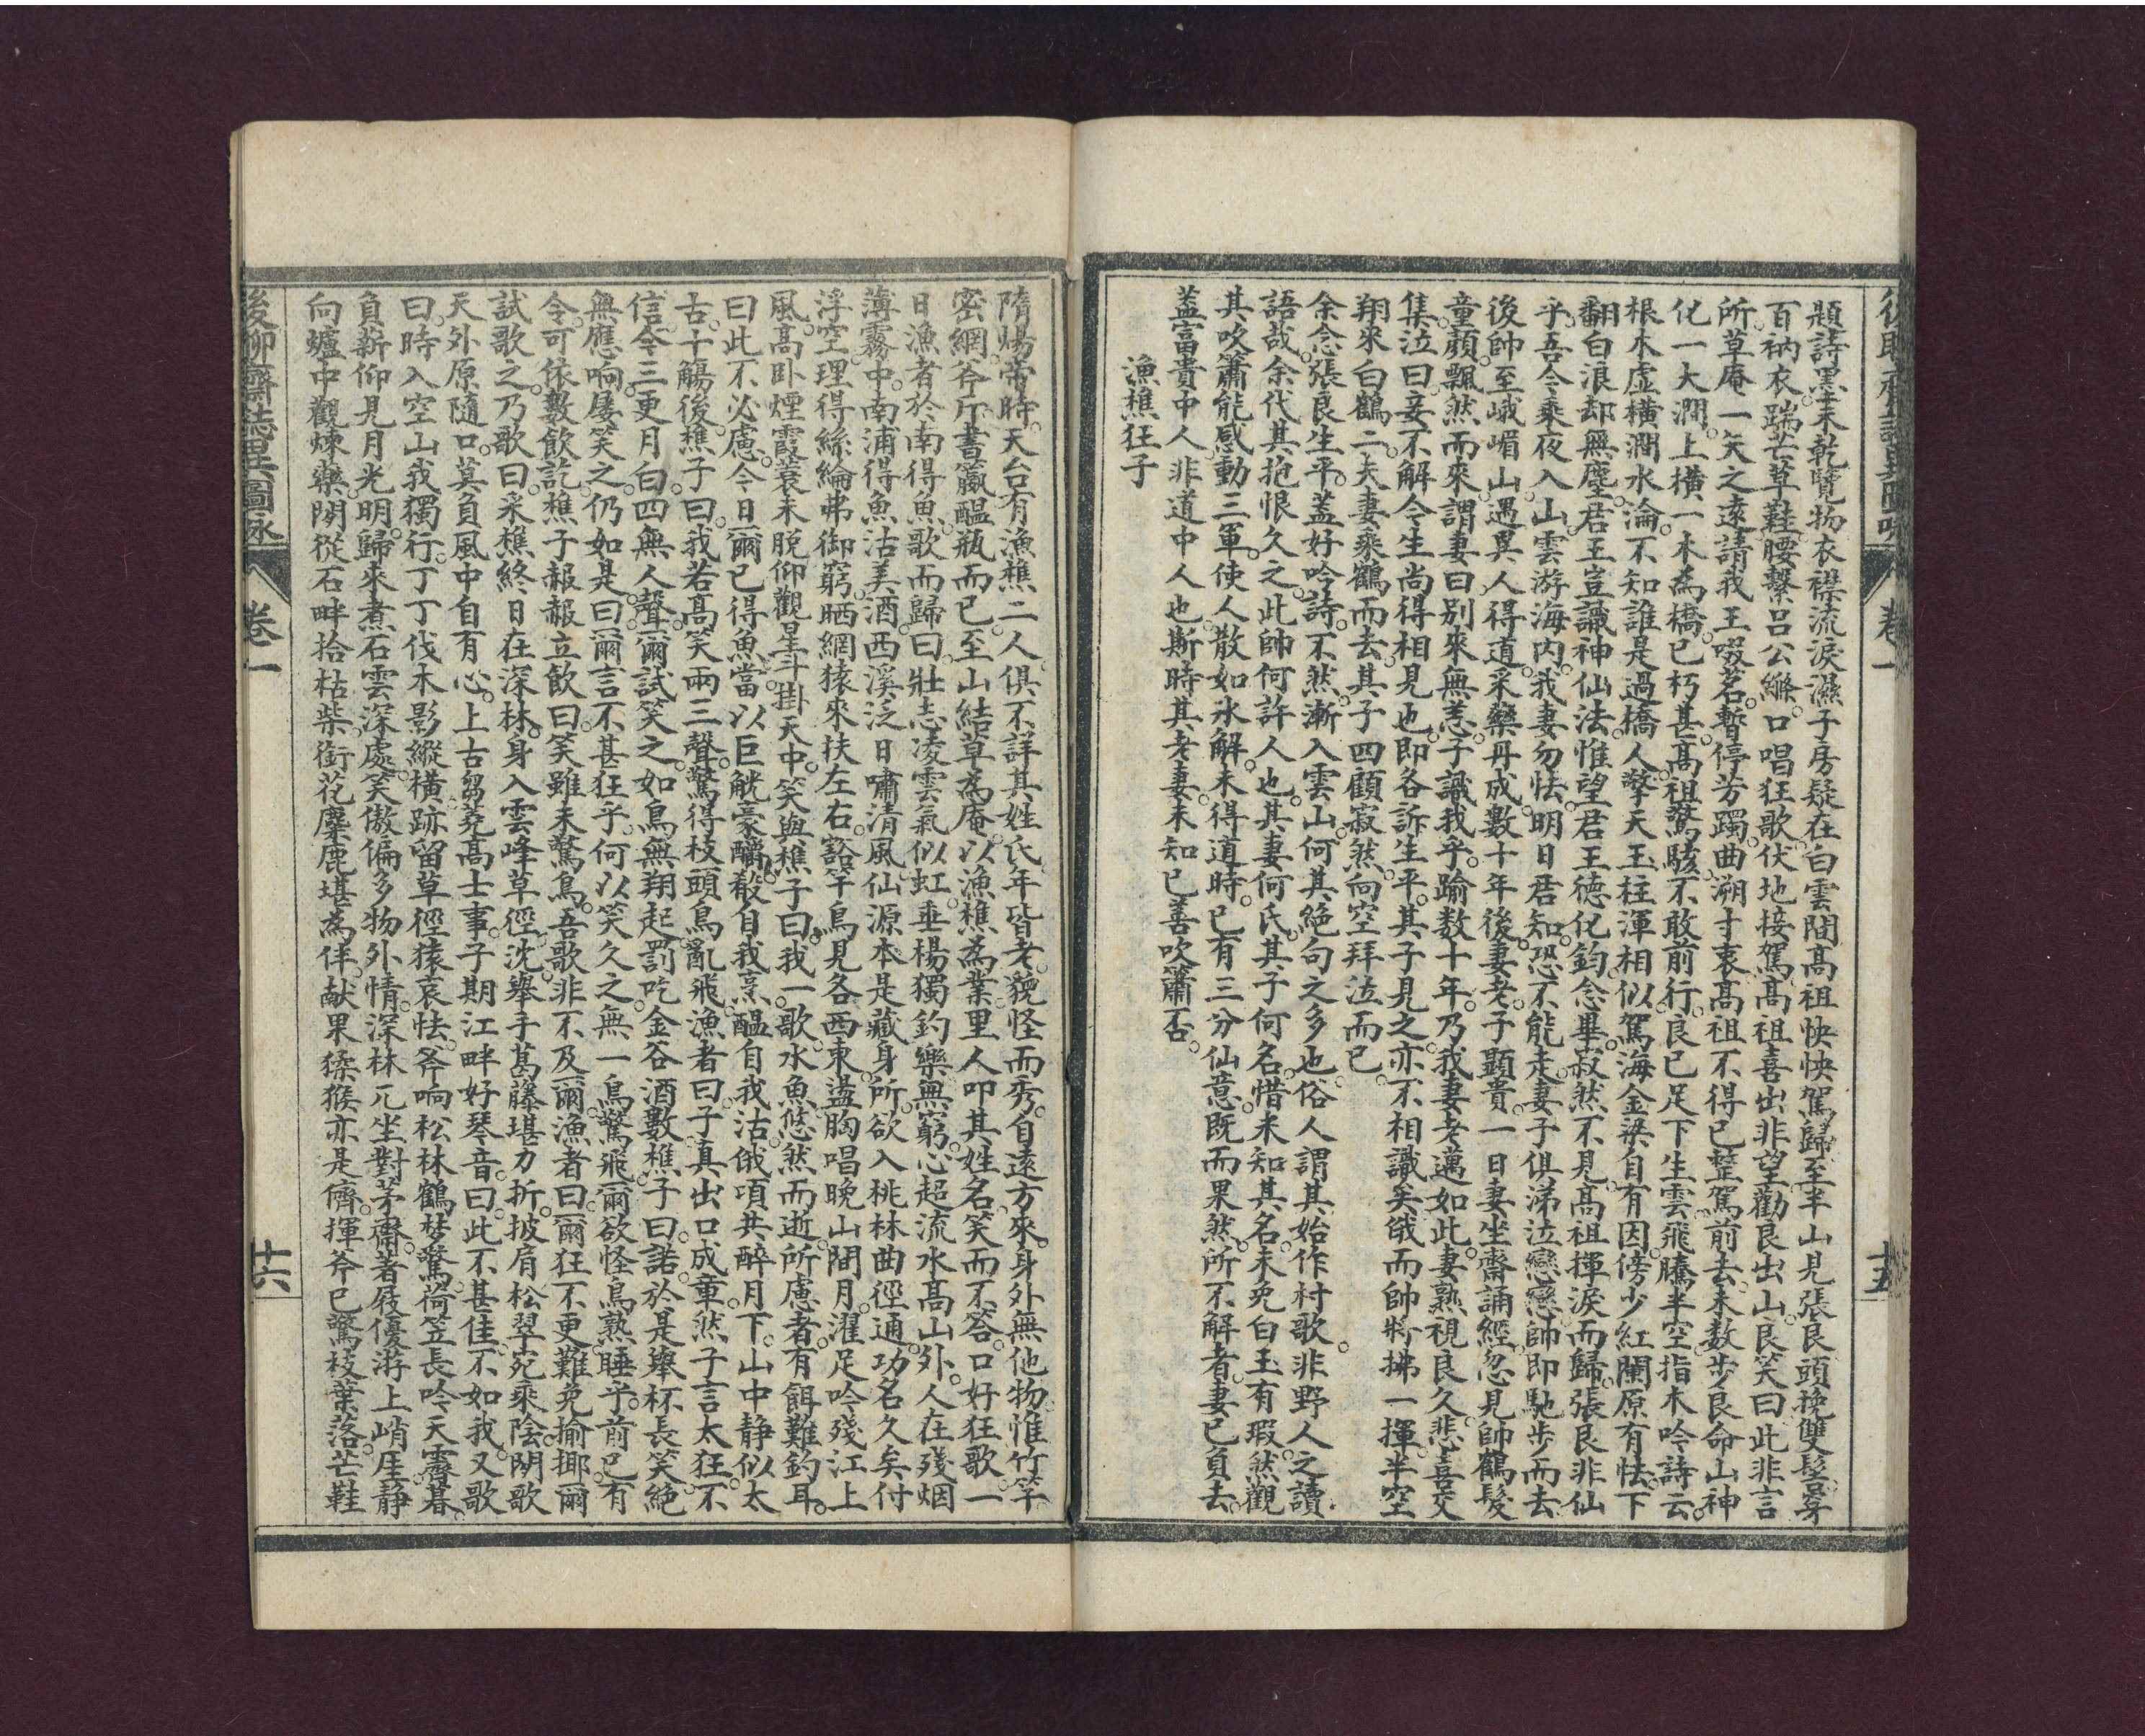 後聊齋誌異圖咏 卷一 十五
題詩黑未乾覽物衣襟流淚濕子房疑在白雲間高祖怏怏駕歸至半山見張良頭挽雙髻穿
百衲衣踹芒草鞋腰繫呂公縧口唱狂歌伏地接駕高祖喜出非望勸良出山良笑曰此非言
所草庵一矢之遠請我王啜茗暫停芳躅曲溯寸衷高祖不得已整駕前去未數步良命山神
化一大澗上橫一木為橋已朽甚高祖驚駭不敢前行良已足下生雲飛騰半空指木吟詩云
根木虛橫澗水淪不知誰是過橋人擎天玉柱渾相似駕海金梁自有因傍少紅闌原有怯下
翻白浪却無塵君王豈識神仙法惟望君王德化鈞念畢寂然不見高祖揮淚而歸張良非仙
乎吾今乘夜入山雲游海內我妻勿怯明日君知恐不能走妻子俱涕泣戀戀帥即馳步而去
後帥至峨嵋山遇異人得道采藥丹成數十年後妻老子顯貴一日妻坐齋誦經忽見帥鶴髮
童顏飄然而來謂妻曰別來無恙子識我乎踰數十年乃我妻老邁如此妻熟視良久悲喜交
集泣曰妾不解今生尚得相見也即各訴生平其子見之亦不相識矣俄而帥將拂一揮半空
翔來白鶴二夫妻乘鶴而去其子四顧寂然向空拜泣而已
余念張良生平蓋好吟詩不然漸入雲山何其絕句之多也俗人謂其始作村歌非野人之讀
語哉余代其抱恨久之此帥何許人也其妻何氏其子何名惜未知其名未免白玉有瑕然觀
其吹簫能感動三軍使人散如氷解未得道時已有三分仙意既而果然所不解者妻已負去
蓋富貴中人非道中人也斯時其老妻未知已善吹簫否
漁樵狂子
隋煬帝時天台有漁樵二人俱不詳其姓氏年皆老貌怪而秀自遠方來身外無他物惟竹竿
密網斧斤書籯醞瓶而已至山結草為庵以漁樵為業里人叩其姓名笑而不答口好狂歌一
日漁者於南得魚歌而歸曰壯志凌雲氣似虹垂楊獨釣樂無窮心超流水高山外人在殘烟
薄霧中南浦得魚沽美酒西溪泛日嘯清風仙源本是藏身所欲入桃林曲徑通功名久矣付
浮空理得絲綸弗御窮晒網猿來扶左右豁竿鳥見各西東盪胸唱晚山間月濯足吟殘江上
風高卧煙霞蓑未脫仰觀星斗掛天中笑與樵子曰我一歌水魚悠然而逝所慮者有餌難釣耳
曰此不必慮今日爾已得魚當以巨觥豪酬殽自我烹醞自我沽俄項共醉月下山中静似太
古十觴後樵子曰我若高笑兩三聲驚得枝頭鳥亂飛漁者曰子真出口成章然子言太狂不
信今三更月白四無人聲爾試笑之如鳥無翔起罰吃金谷酒數樵子曰諾於是舉杯長笑絕
無應响屢笑之仍如是曰爾言不甚狂乎何以笑久之無一鳥驚飛爾欲怪鳥熟睡乎前已有
令可依數飲訖樵子赧赧立飲曰笑雖未驚鳥吾歌非不及爾漁者曰爾狂不更難免揄揶爾
試歌之乃歌曰采樵終日在深林身入雲峰草徑沈舉手葛藤堪力折披肩松翠宛乘陰閒歌
天外原隨口莫負風中自有心上古芻蕘高士事子期江畔好琴音曰此不甚佳不如我又歌
曰時入空山我獨行丁丁伐木影縱橫跡留草徑猿哀怯斧响松林鶴夢驚荷笠長吟天霽暮
負薪仰見月光明歸來煮石雲深處笑傲偏多物外情深林兀坐對茅齋著屐優游上峭厓静
向爐中觀煉藥閒從石畔拾枯柴銜花麋鹿堪為伴献果猱猴亦是儕揮斧已驚枝葉落芒鞋
後聊齋誌異圖咏 卷一 十六